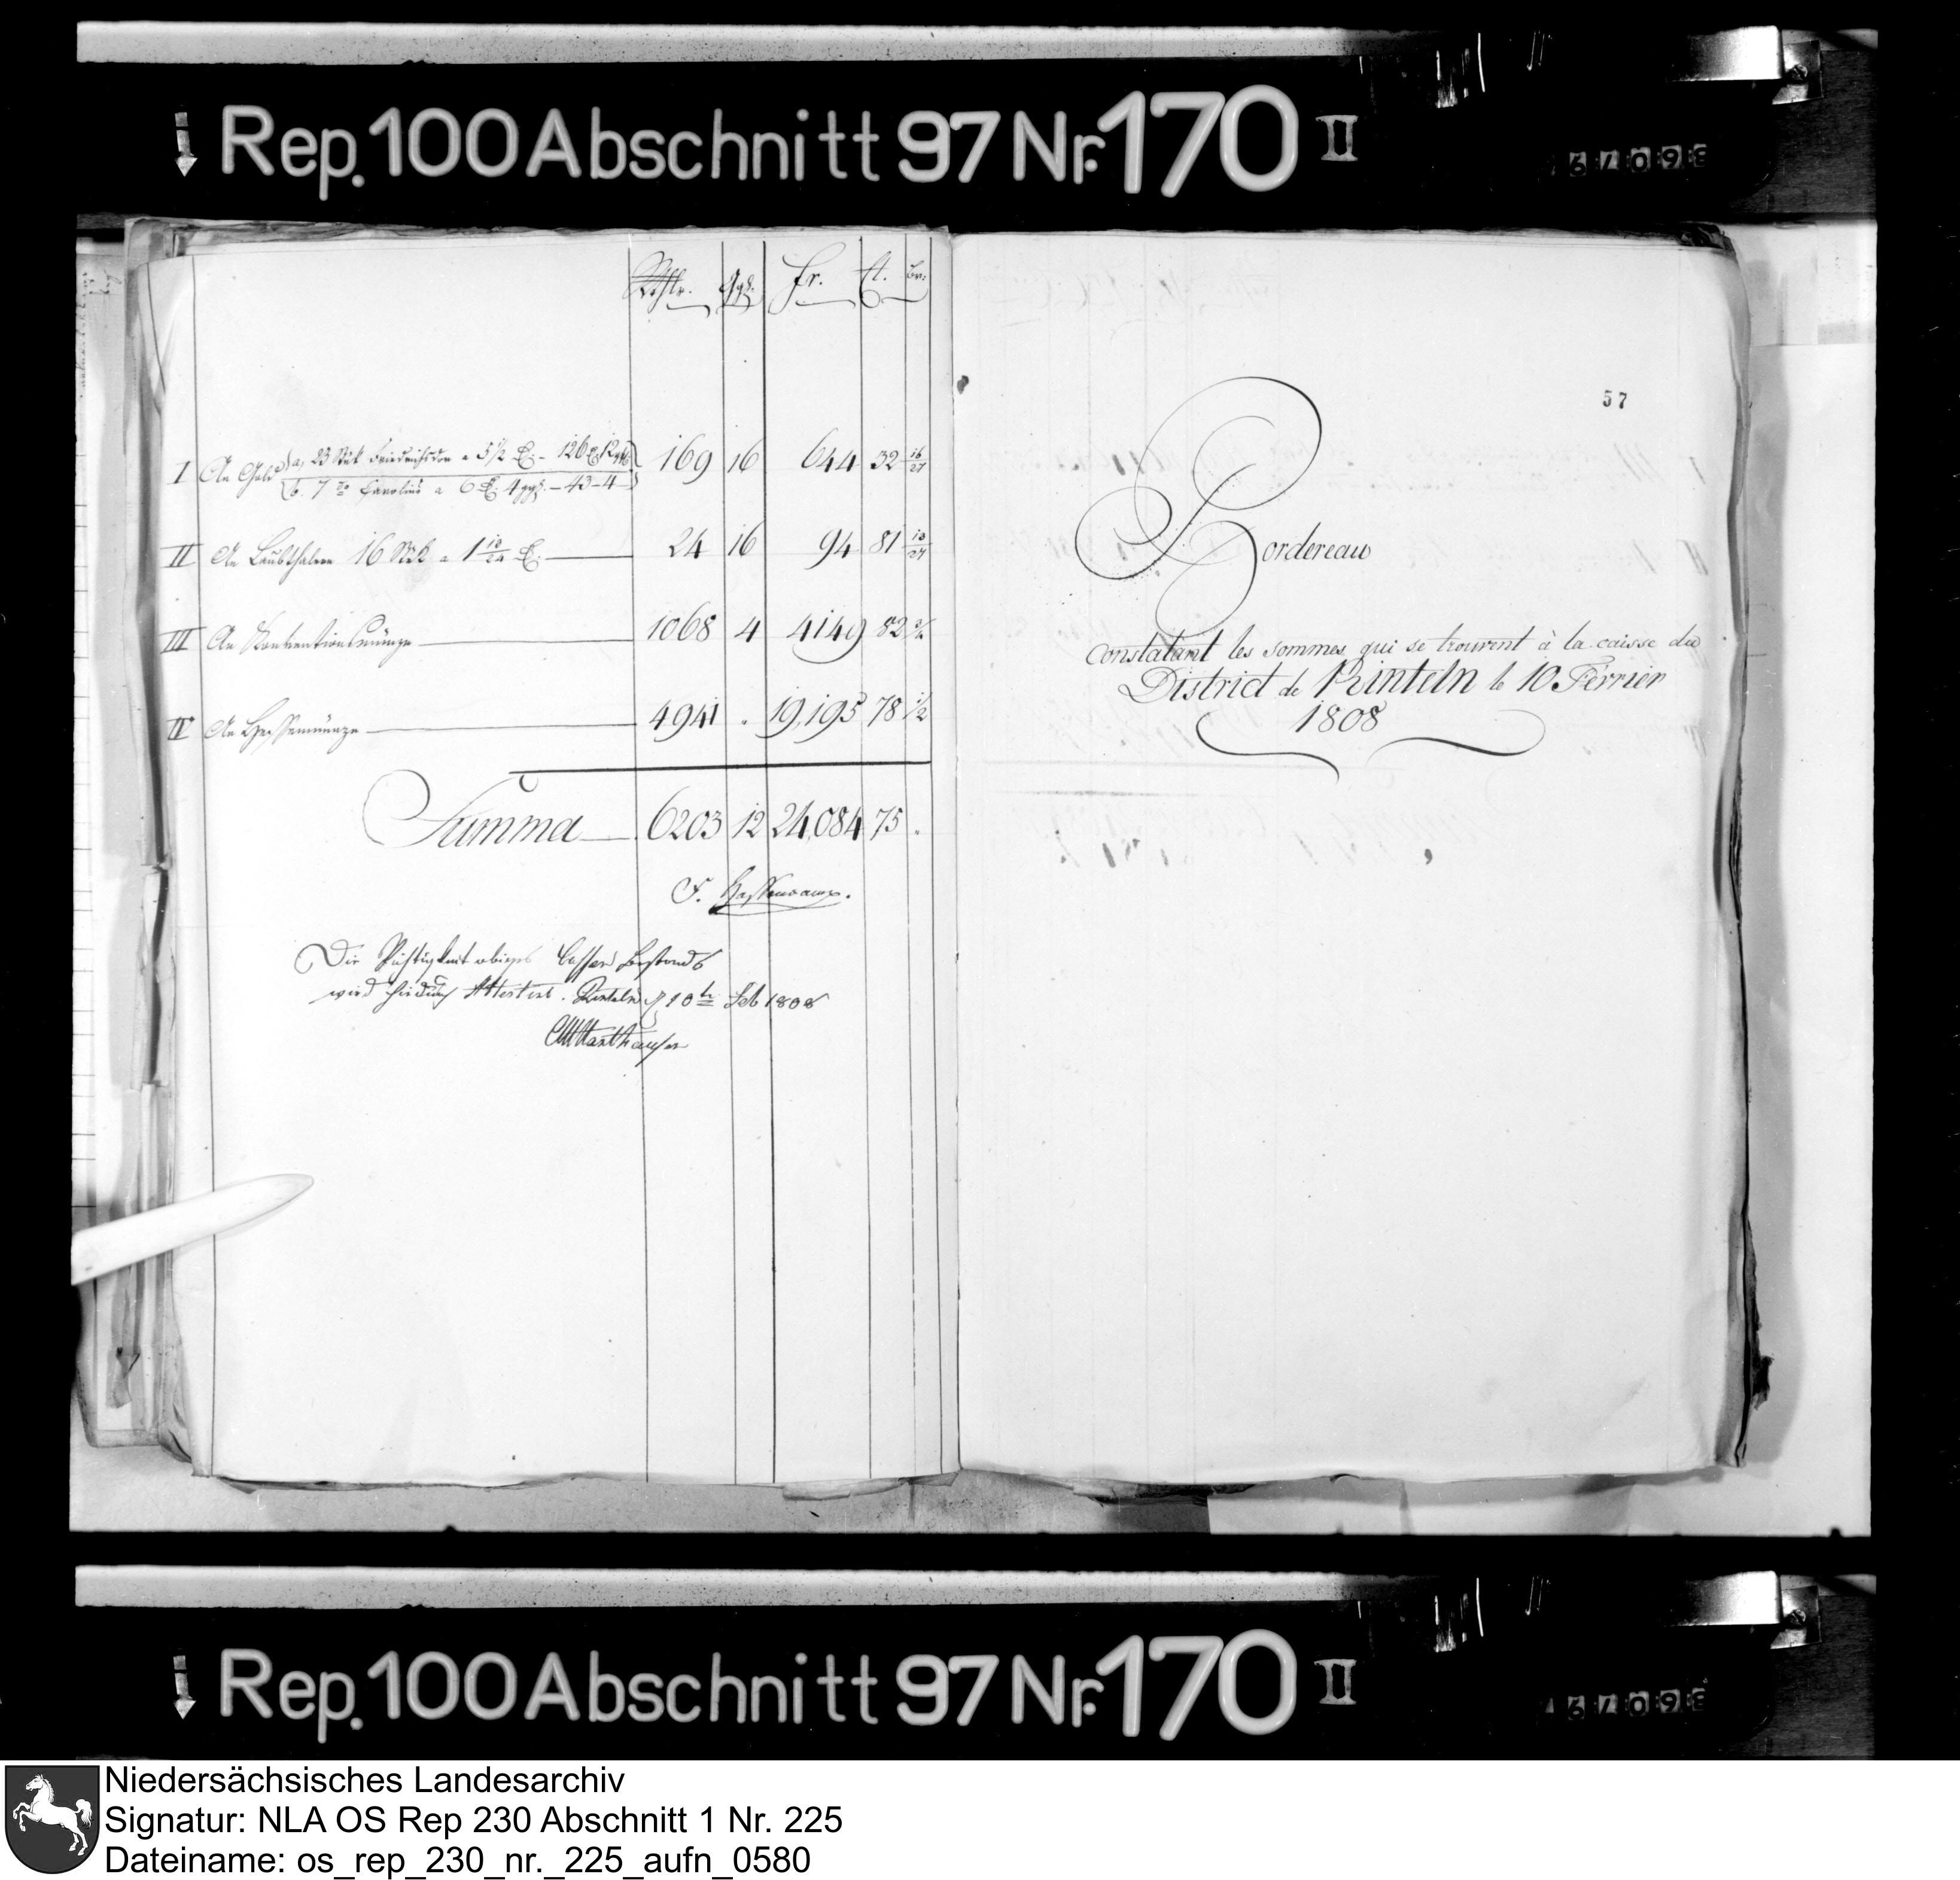 Rep. 100 Abschnitt 97 Nr. 170 II
Rthlr. Ggl. Fr. Ct.
I An Gold a, 23 Stük Friedrichsdor a 5 1/2 Rt. - 126 Rt. 12 ggl. 169 16 644 32 16/27
b. 7 do Carolins a 6 Rt. 4 ggl. - 43 - 4 -
II An Laubthalern 16 Stük a 1 13/24 Rt. 24 16 94 81
III An Konventionsmünze 1068 4 4149 82
IV An Hessenmünze 4941 . 19,195 78 1/2
Summa 6203 12 24,084 75 .
Die Richtigkeit obiges Cassen Bestands
wird hiedurch Attestirt. Rinteln d 10te Feb 1808
57
Bordereau
Constatant les sommes qui se trouvent à la caisse du
District de Rinteln le 10 Férrier
1808
Rep. 100 Abschnitt 97 Nr. 170 II
Niedersächsisches Landesarchiv
Signatur: NLA OS Rep 230 Abschnitt 1 Nr. 225
Dateiname: os_rep_230_nr._225_aufn_0580